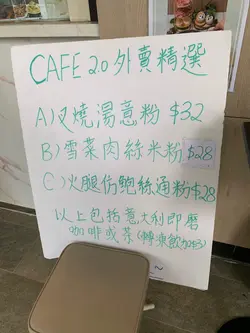 CAFE 2.0 外賣精選
A) 叉燒湯意粉 $32
B) 雪菜肉絲米粉 $28
C) 火腿仿鮑絲通粉 $28
以上包括意大利即磨
咖啡或茶(轉凍飲加$3)